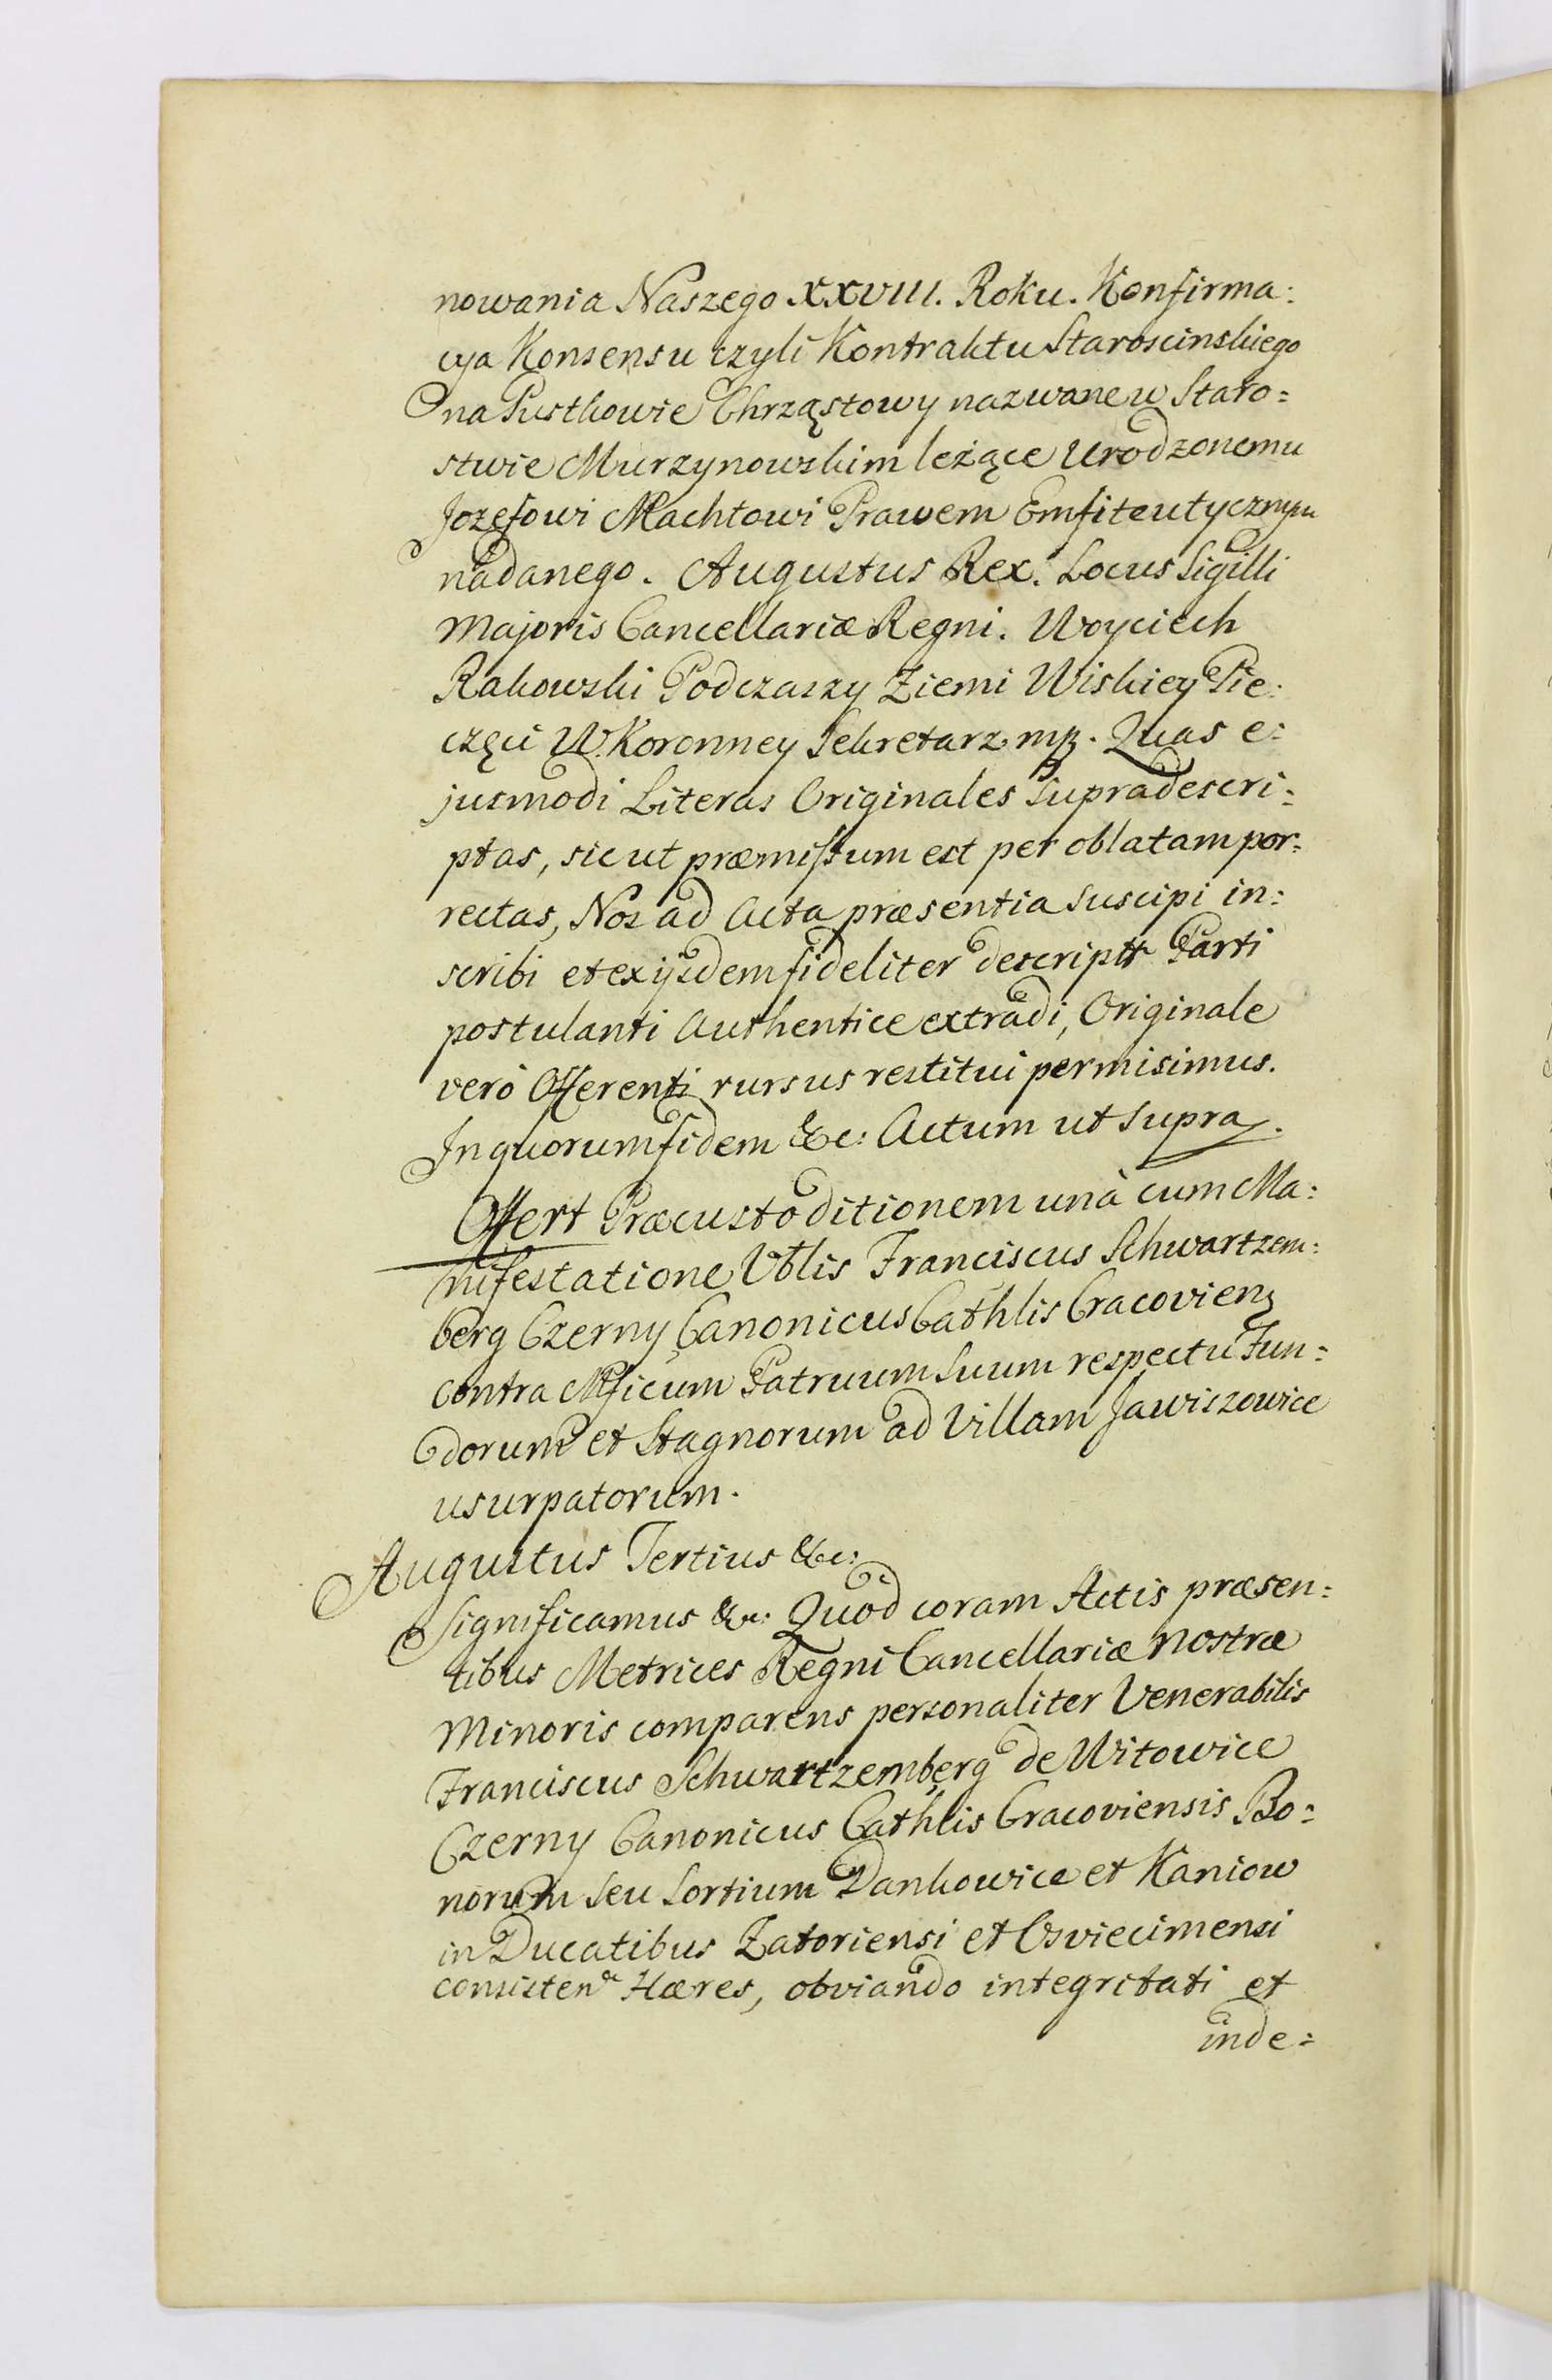 nowania Naszego XXVIII. Roku. Konfirma:
cya Konsensu czyli Kontraktu Staroscinskiego
na Pustkowie Chrząstowy nazwane w Staro=
stwie Murzynowskim leżące Urodzonemu
Jozefowi Machtowi Prawem Emfiteutycznym
nadanego. Augustus Rex. Locus Sigilli
Majoris Cancellariæ Regni. Woyciech
Rakowski Podczaszy Ziemi Wiskiey Pie:
częci W. Koronney Sekretarz mp. Quas e:
jusmodi Literas Originales supradescri:
ptas, sicut præmissum est per oblatam por:
rectas, Nos ad Acta præsentia suscipi in:
scribi et ex ijsdem fideliter descriptt Parti
postulanti Authentice extradi, Originale
verò Offerenti rursus restitui permisimus.
In quorum fidem &c: Actum ut supra.
Offert Præcustoditionem unà cum Ma:
nifestatione Vblis Franciscus Schwartzem:
berg Czerny Canonicus Cathlis Cracovien
contra Mficum Patruum Suum respectu Fun:
dorum et Stagnorum ad Villam Jawiszowice
usurpatorum.
Augustus Tertius &c:
Significamus &c: Quod coram Actis præsen:
tibus Metrices Regni Cancellariæ Nostræ
Minoris comparens personaliter Venerabilis
Franciscus Schwartzemberg de Witowice
Czerny Canonicus Cathlis Cracoviensis Bo:
norum seu Sortium Dankowice et Kaniow
in Ducatibus Zatoriensi et Osviecimensi
consisten Hæres, obviando integritati et
inde=